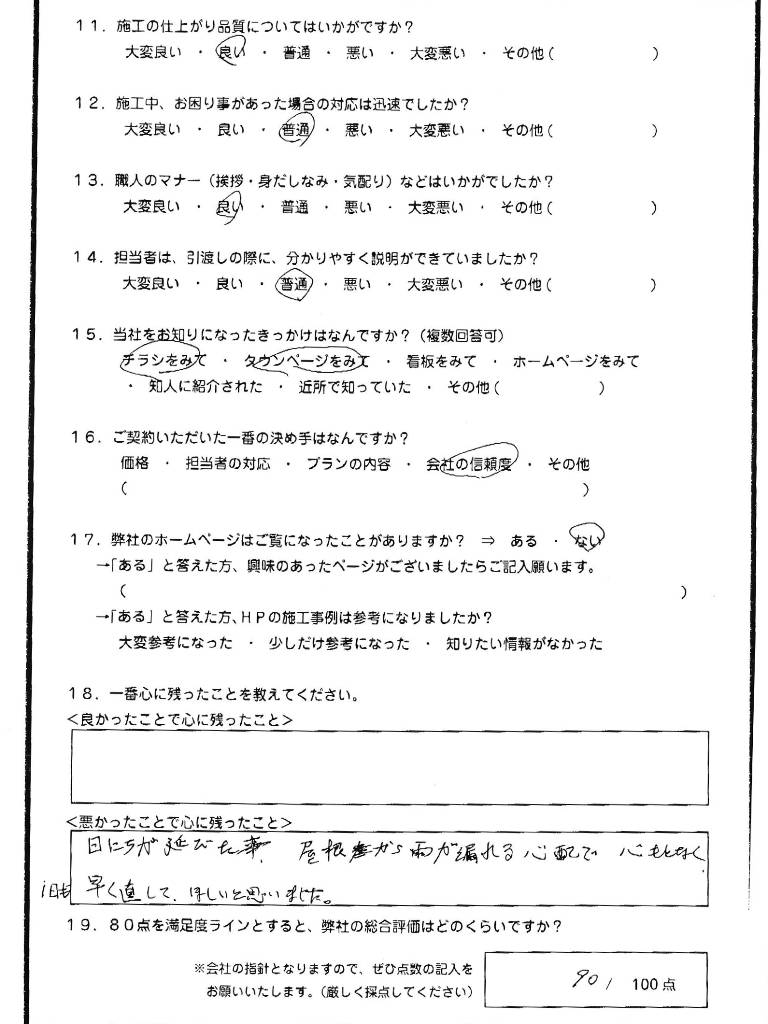 11．施工の仕上がり品質についてはいかがですか？
大変良い ・ 良い ・ 普通 ・ 悪い ・ 大変悪い ・ その他（　　　　　　）
12．施工中、お困り事があった場合の対応は迅速でしたか？
大変良い ・ 良い ・ 普通 ・ 悪い ・ 大変悪い ・ その他（　　　　　　）
13．職人のマナー（挨拶・身だしなみ・気配り）などはいかがでしたか？
大変良い ・ 良い ・ 普通 ・ 悪い ・ 大変悪い ・ その他（　　　　　　）
14．担当者は、引渡しの際に、分かりやすく説明ができていましたか？
大変良い ・ 良い ・ 普通 ・ 悪い ・ 大変悪い ・ その他（　　　　　　）
15．当社をお知りになったきっかけはなんですか？（複数回答可）
チラシをみて ・ タウンページをみて ・ 看板をみて ・ ホームページをみて
・ 知人に紹介された ・ 近所で知っていた ・ その他（　　　　　　）
16．ご契約いただいた一番の決め手はなんですか？
価格 ・ 担当者の対応 ・ プランの内容 ・ 会社の信頼度 ・ その他
（　　　　　　　　　　　　　　　　　　　　　　　　）
17．弊社のホームページはご覧になったことがありますか？ ⇒ ある ・ ない
→「ある」と答えた方、興味のあったページがございましたらご記入願います。
（　　　　　　　　　　　　　　　　　　　　　　　　　　　　　）
→「ある」と答えた方、ＨＰの施工事例は参考になりましたか？
大変参考になった ・ 少しだけ参考になった ・ 知りたい情報がなかった
18．一番心に残ったことを教えてください。
＜良かったことで心に残ったこと＞
＜悪かったことで心に残ったこと＞
日にちが延びた事、屋根から雨が漏れる心配で 心もとなく
1日も早く直して、ほしいと思いました。
19．80点を満足度ラインとすると、弊社の総合評価はどのくらいですか？
※会社の指針となりますので、ぜひ点数の記入を
お願いいたします。（厳しく採点してください）
90 / 100点